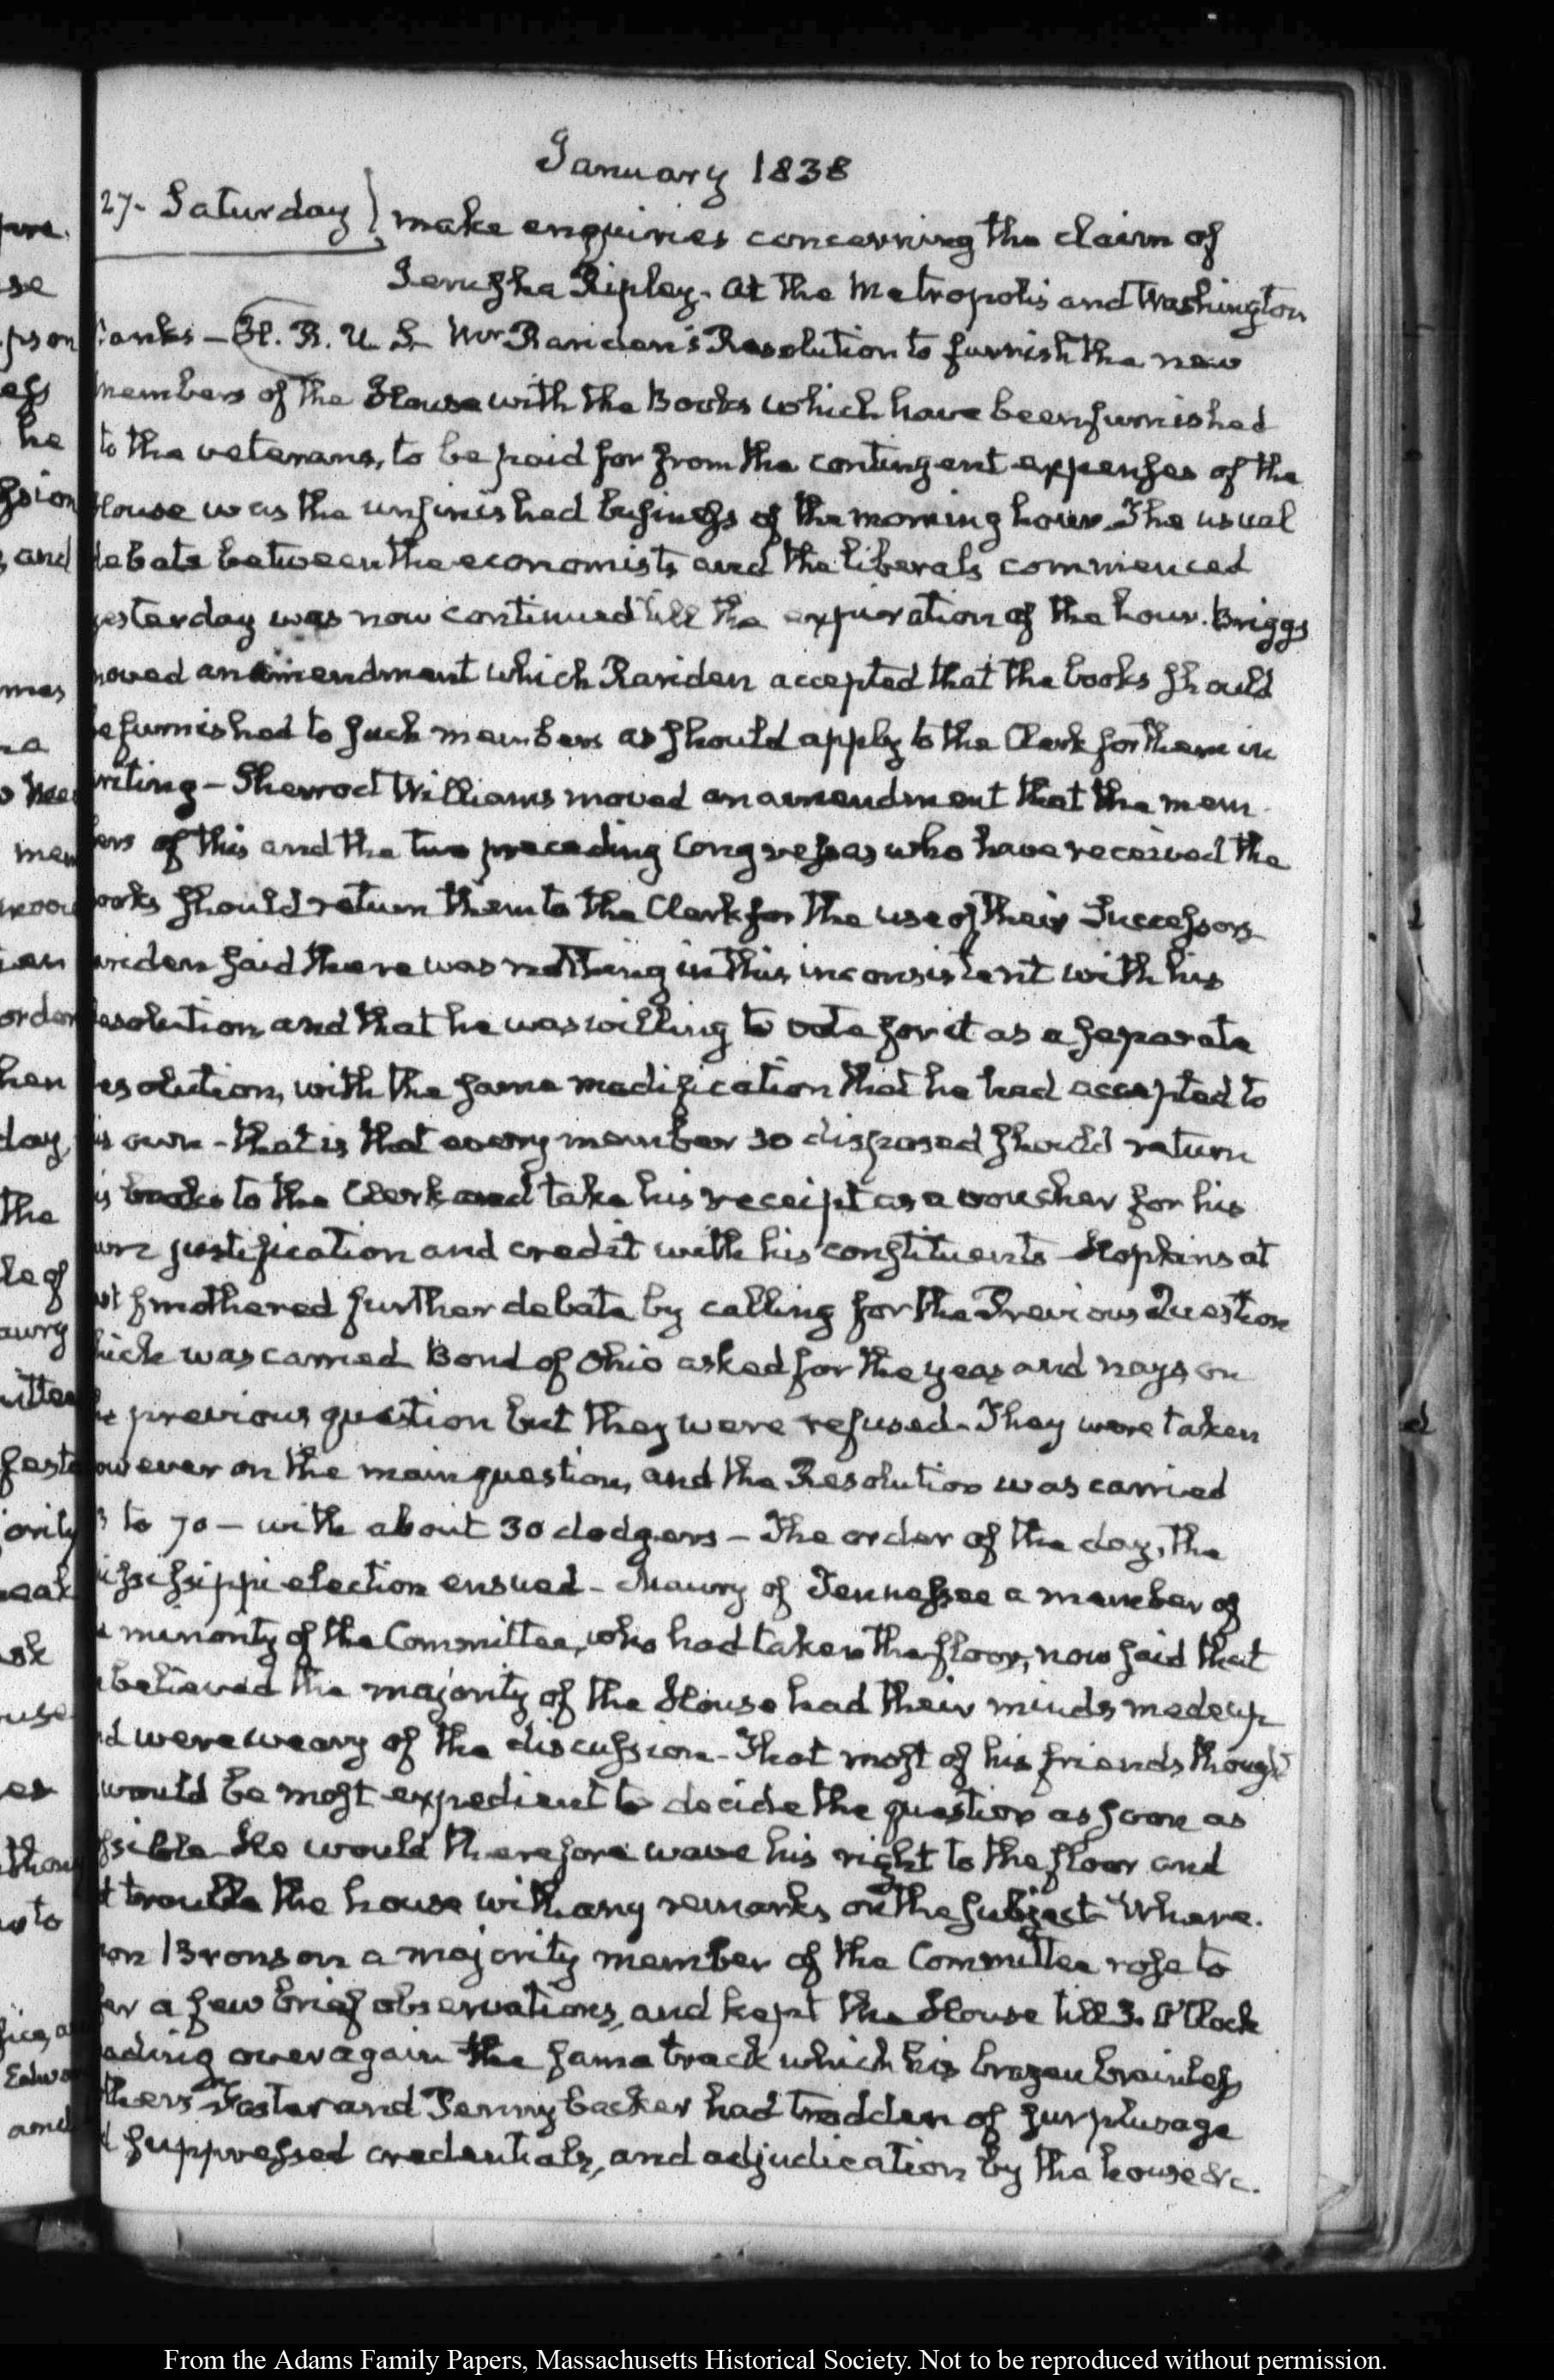 January 1838
27. Saturday } make enquiries concerning the claim of
Jerusha Ripley. At the Metropolis and Washington
Banks – H. R. U. S. Mr Rariden's Resolution to furnish the new
members of the House with the Books which have been furnished
to the veterans, to be paid for from the contingent expenses of the
House was the unfinished business of the morning hour. The usual
debate between the economists and the liberals commenced
yesterday was now continued till the expiration of the hour. Briggs
moved an amendment which Rariden accepted that the books should
be furnished to such members as should apply to the Clerk for them in
writing – Sherrod Williams moved an amendment that the mem
bers of this and the two preceding Congresses who have received the
books should return them to the Clerk for the use of their Successors
Rariden said there was nothing in this inconsistent with his
Resolution, and that he was willing to vote for it as a separate
resolution, with the same modification that he had accepted to
his own – that is that every member so disposed should return
his books to the Clerk and take his receipt as a voucher for his
own justification and credit with his constituents – Hopkins at
last smothered further debate by calling for the Previous Question
which was carried Bond of Ohio asked for the yeas and nays on
the previous question but they were refused – They were taken
however on the main question, and the Resolution was carried
to 70 – with about 30 dodgers – The order of the day, the
Mississippi election ensued – Maury of Tennessee a member of
the minority of the Committee, who had taken the floor, now said that
he believed the majority of the House had their minds made up
and were weary of the discussion – That most of his friends thought
would be most expedient to decide the question as soon as
possible He would therefore wave his right to the floor and
not trouble the house with any remarks on the subject – Where.
upon Bronson a majority member of the Committee rose to
offer a few brief observations, and kept the House till 3. O'Clock
treading over again the same track which his brazen brainless
brothers Foster and Pennybacker had trodden of surplusage
and suppressed credentials, and adjudication by the house &c.
From the Adams Family Papers, Massachusetts Historical Society. Not to be reproduced without permission.